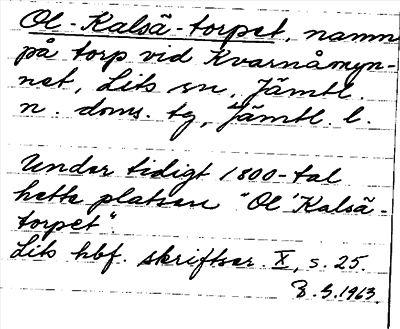 Ol-Kalsä-torpet, namn
på torp vid Kvarnåmyn-
net, Lits sn, Jämtl.
n. doms. tg, Jämtl. l.
Under tidigt 1800-tal
hette platsen "Ol'Kalsä-
torpet".
Lits hbf. skriftser. X, s. 25.
S.1963